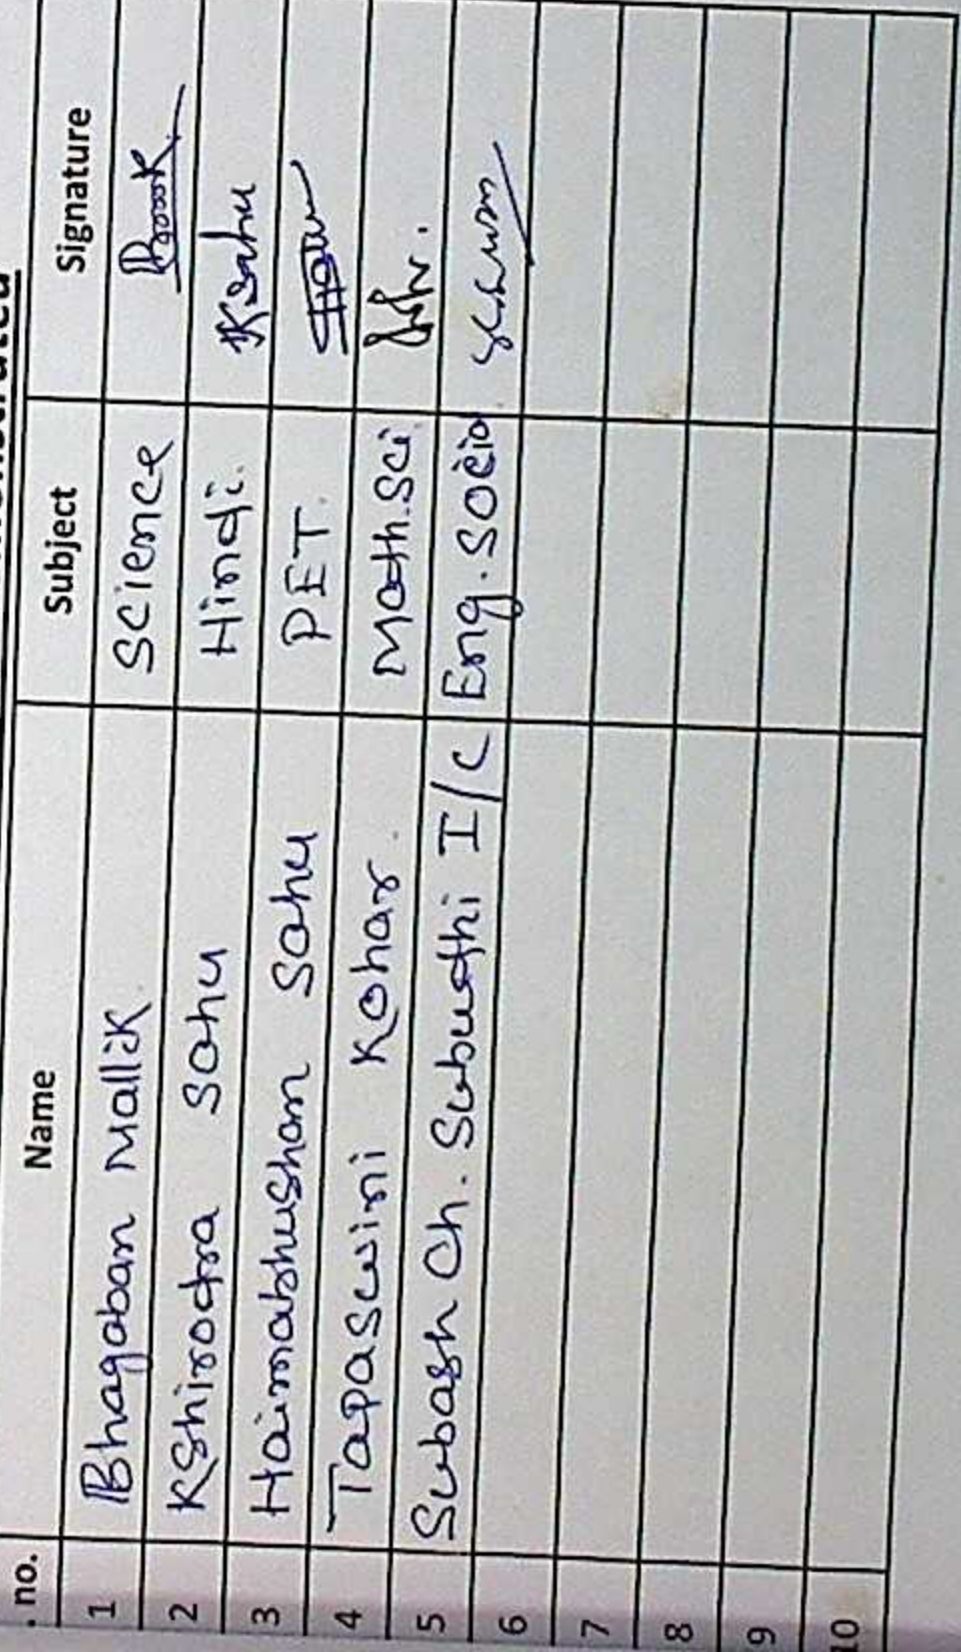 . no. Name Subject Signature
1 Bhagaban Mallik Science
2 Kshirodra Sahu Hindi. Ksahu
3 Haimabhushan Sahu PET.
4 Tapaswini Kohar. Math.Sci
5 Subash Ch. Subuthi I/C Eng. Socio
6
7
8
9
10